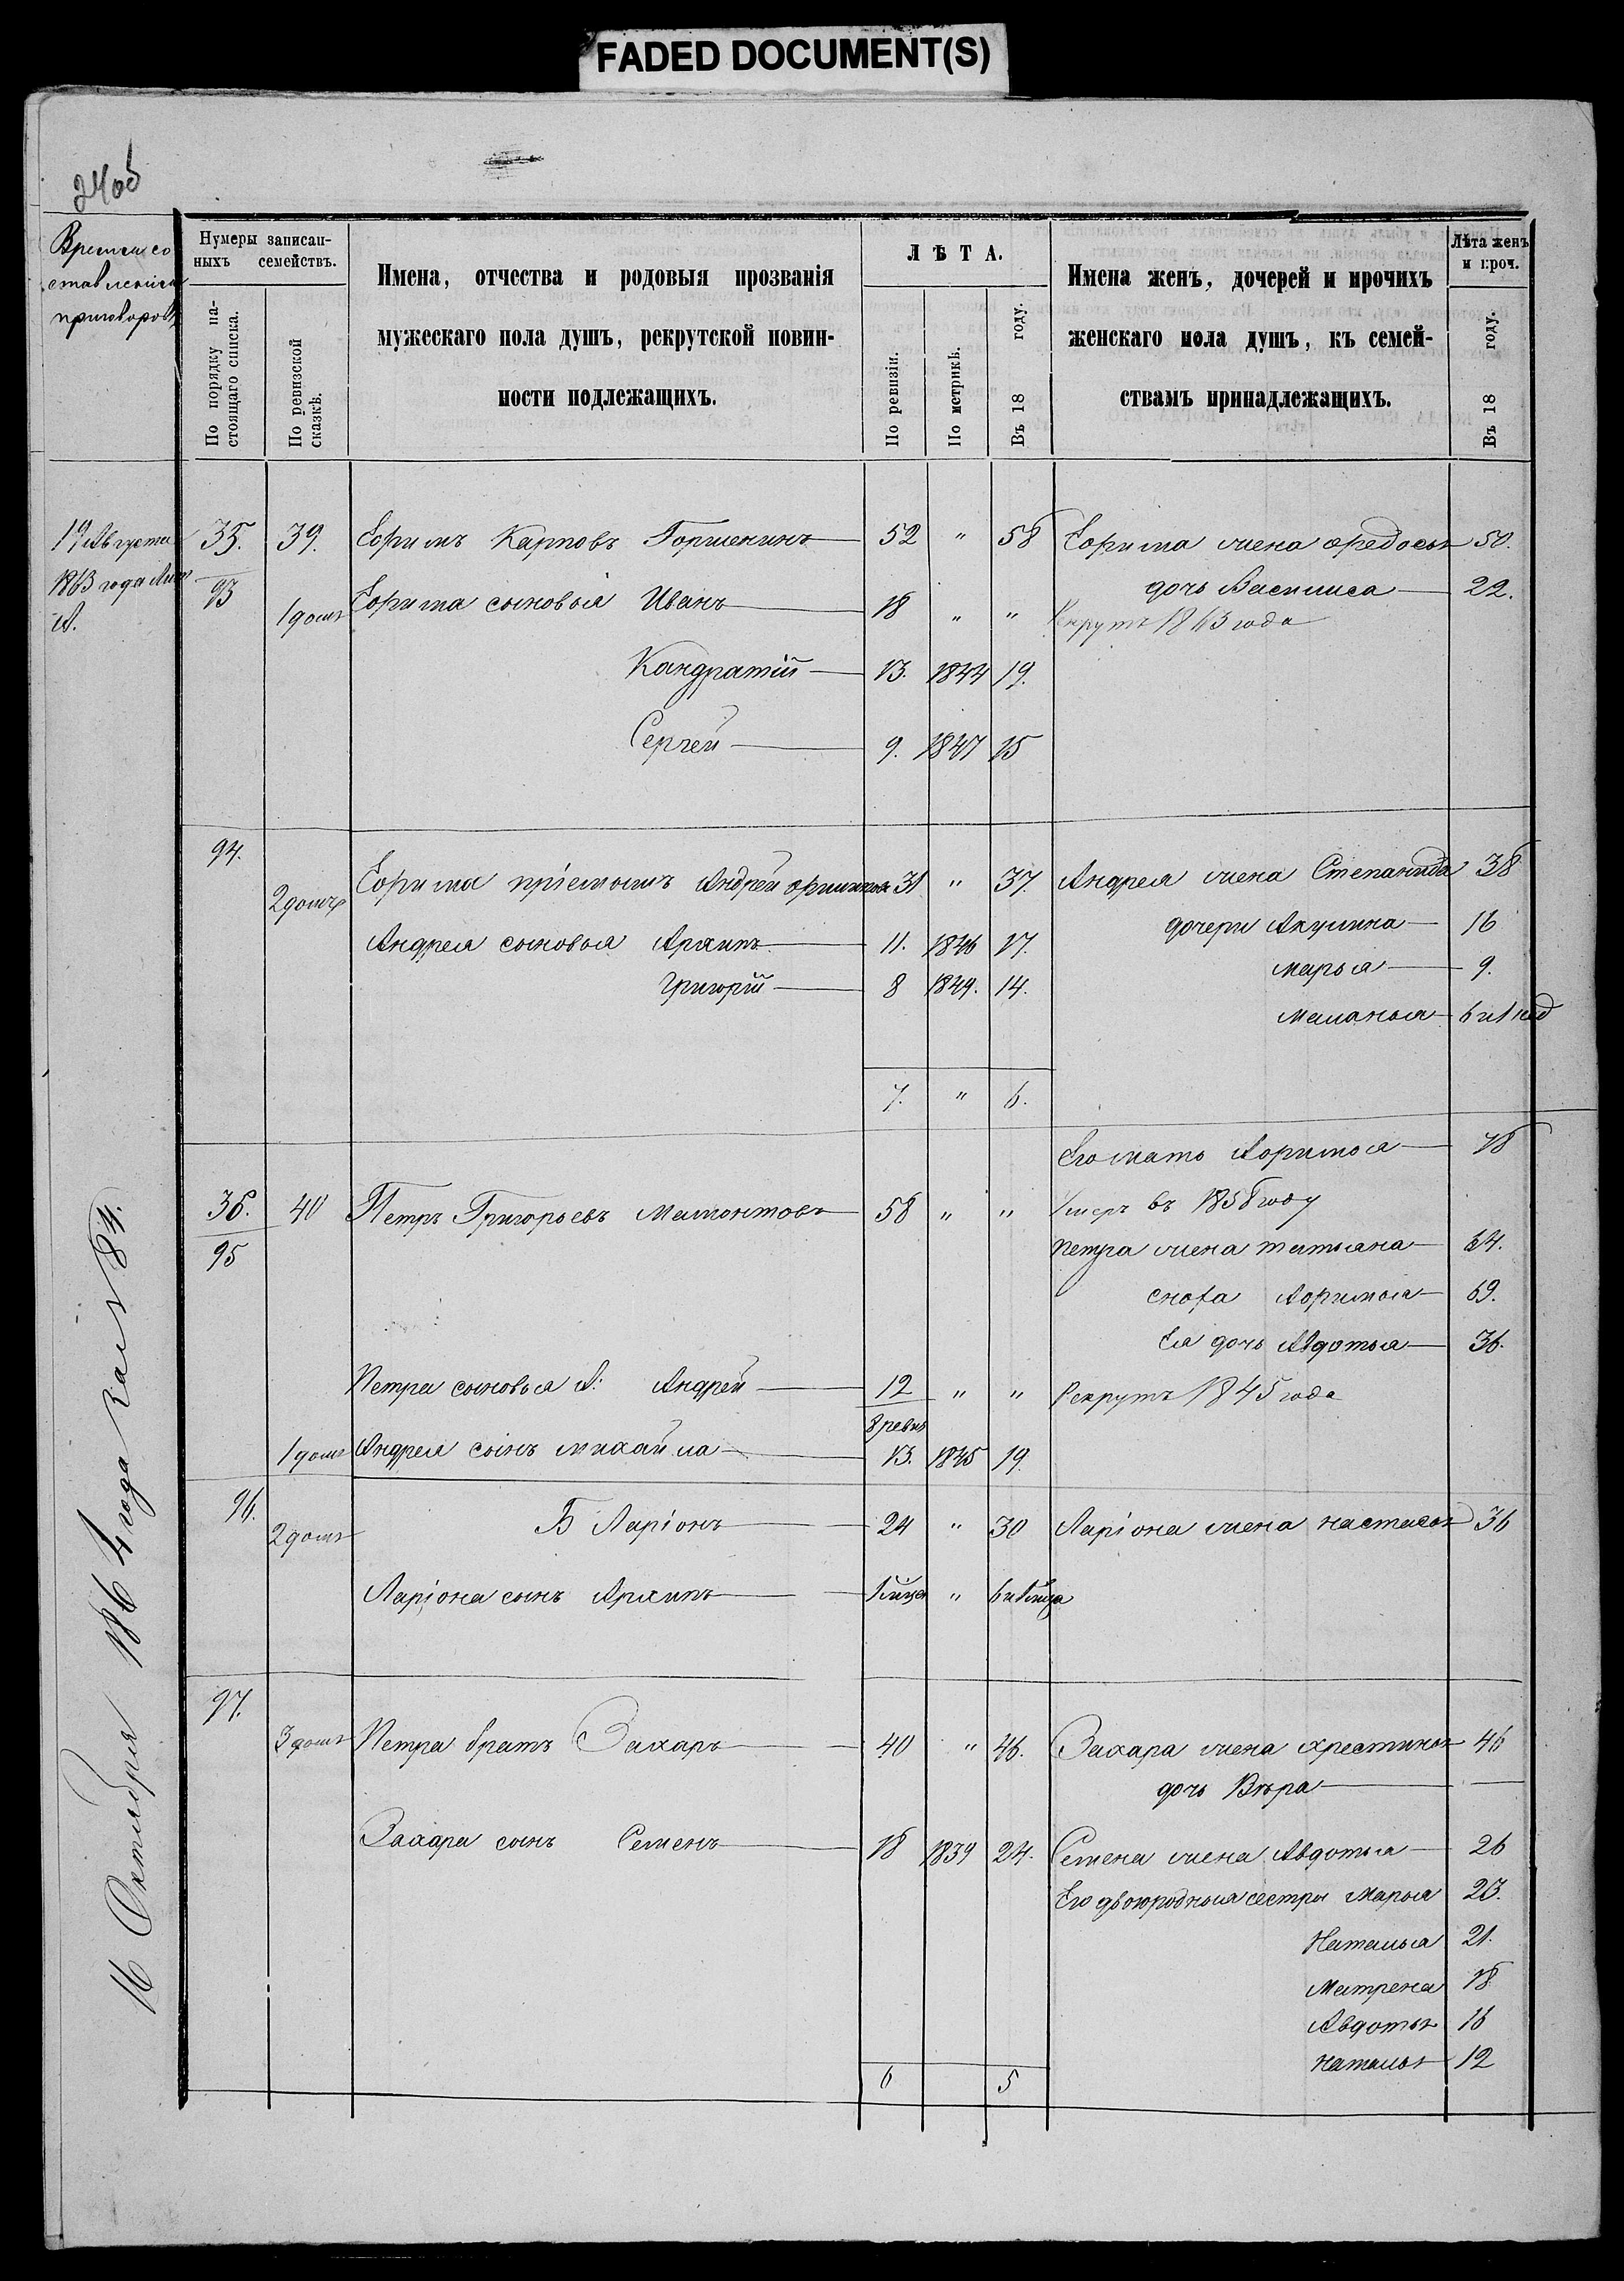 FADED DOCUMENT(S)
240б
Время со
ставленія
приговоровъ
Нумеры записан-
ныхъ семействъ.
По порядку на-
стоящаго списка.
По ревизской
сказкѣ.
Имена, отчества и родовыя прозванія
мужескаго пола душъ, рекрутской повин-
ности подлежащихъ.
ЛѢТА.
По ревизіи.
По метрикѣ.
Въ 18 году.
Имена женъ, дочерей и прочихъ
женскаго пола душъ, къ семей-
ствамъ принадлежащихъ.
Лѣта женъ
и проч.
Въ 18 году.
19 Августа
1863 года
35. 39. Ефимъ Карповъ Горшенинъ 52 " 58 Ефима жена Федосья 50.
93
дочь Василиса 22.
1 домъ Ефима сыновья Иванъ 18 " " Рекрутъ 1863 года
Кандратій 13. 1844 19.
Сергей 9. 1847 15
94.
2 домъ Ефима пріемышъ Андрей 31 " 37 Андрея жена Степанида 38
дочери Акулина 16
Андрея сыновья Архипъ 11. 1846 17.
Марья 9.
Григорій 8 1849. 14.
Маланья 6 и 1 нед
7. " 6.
Его мать Афимья 78
36. 40 Петръ Григорьевъ Мамонтовъ 58 " " Умеръ въ 1858 году
95
Петра жена Татьяна 64.
сноха Афимья 69.
Ея дочь Авдотья 36.
Петра сыновья А: Андрей 12 " " Рекрутъ 1845 года
8 ревиз
1 домъ Андрея сынъ Михайла 13. 1845 19.
96.
2 домъ Б Ларіонъ 24 " 30 Ларіона жена Настасья 36
Ларіона сынъ Архипъ "
97.
3 домъ Петра братъ Захаръ 40 " 46. Захара жена Хрестинья 46
дочь Вѣра
Захара сынъ Семенъ 18 1839 24. Семена жена Авдотья 26
Его двоюродныя сестры Марья 23.
Наталья 21.
Матрена 18
Авдотья 16
Наталья 12
6 5
16 Октября 1864 года за № 84.